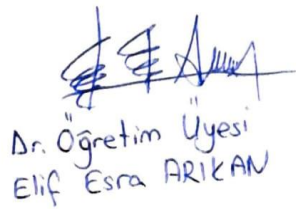 Dr. Öğretim Üyesi
Elif Esra ARIKAN